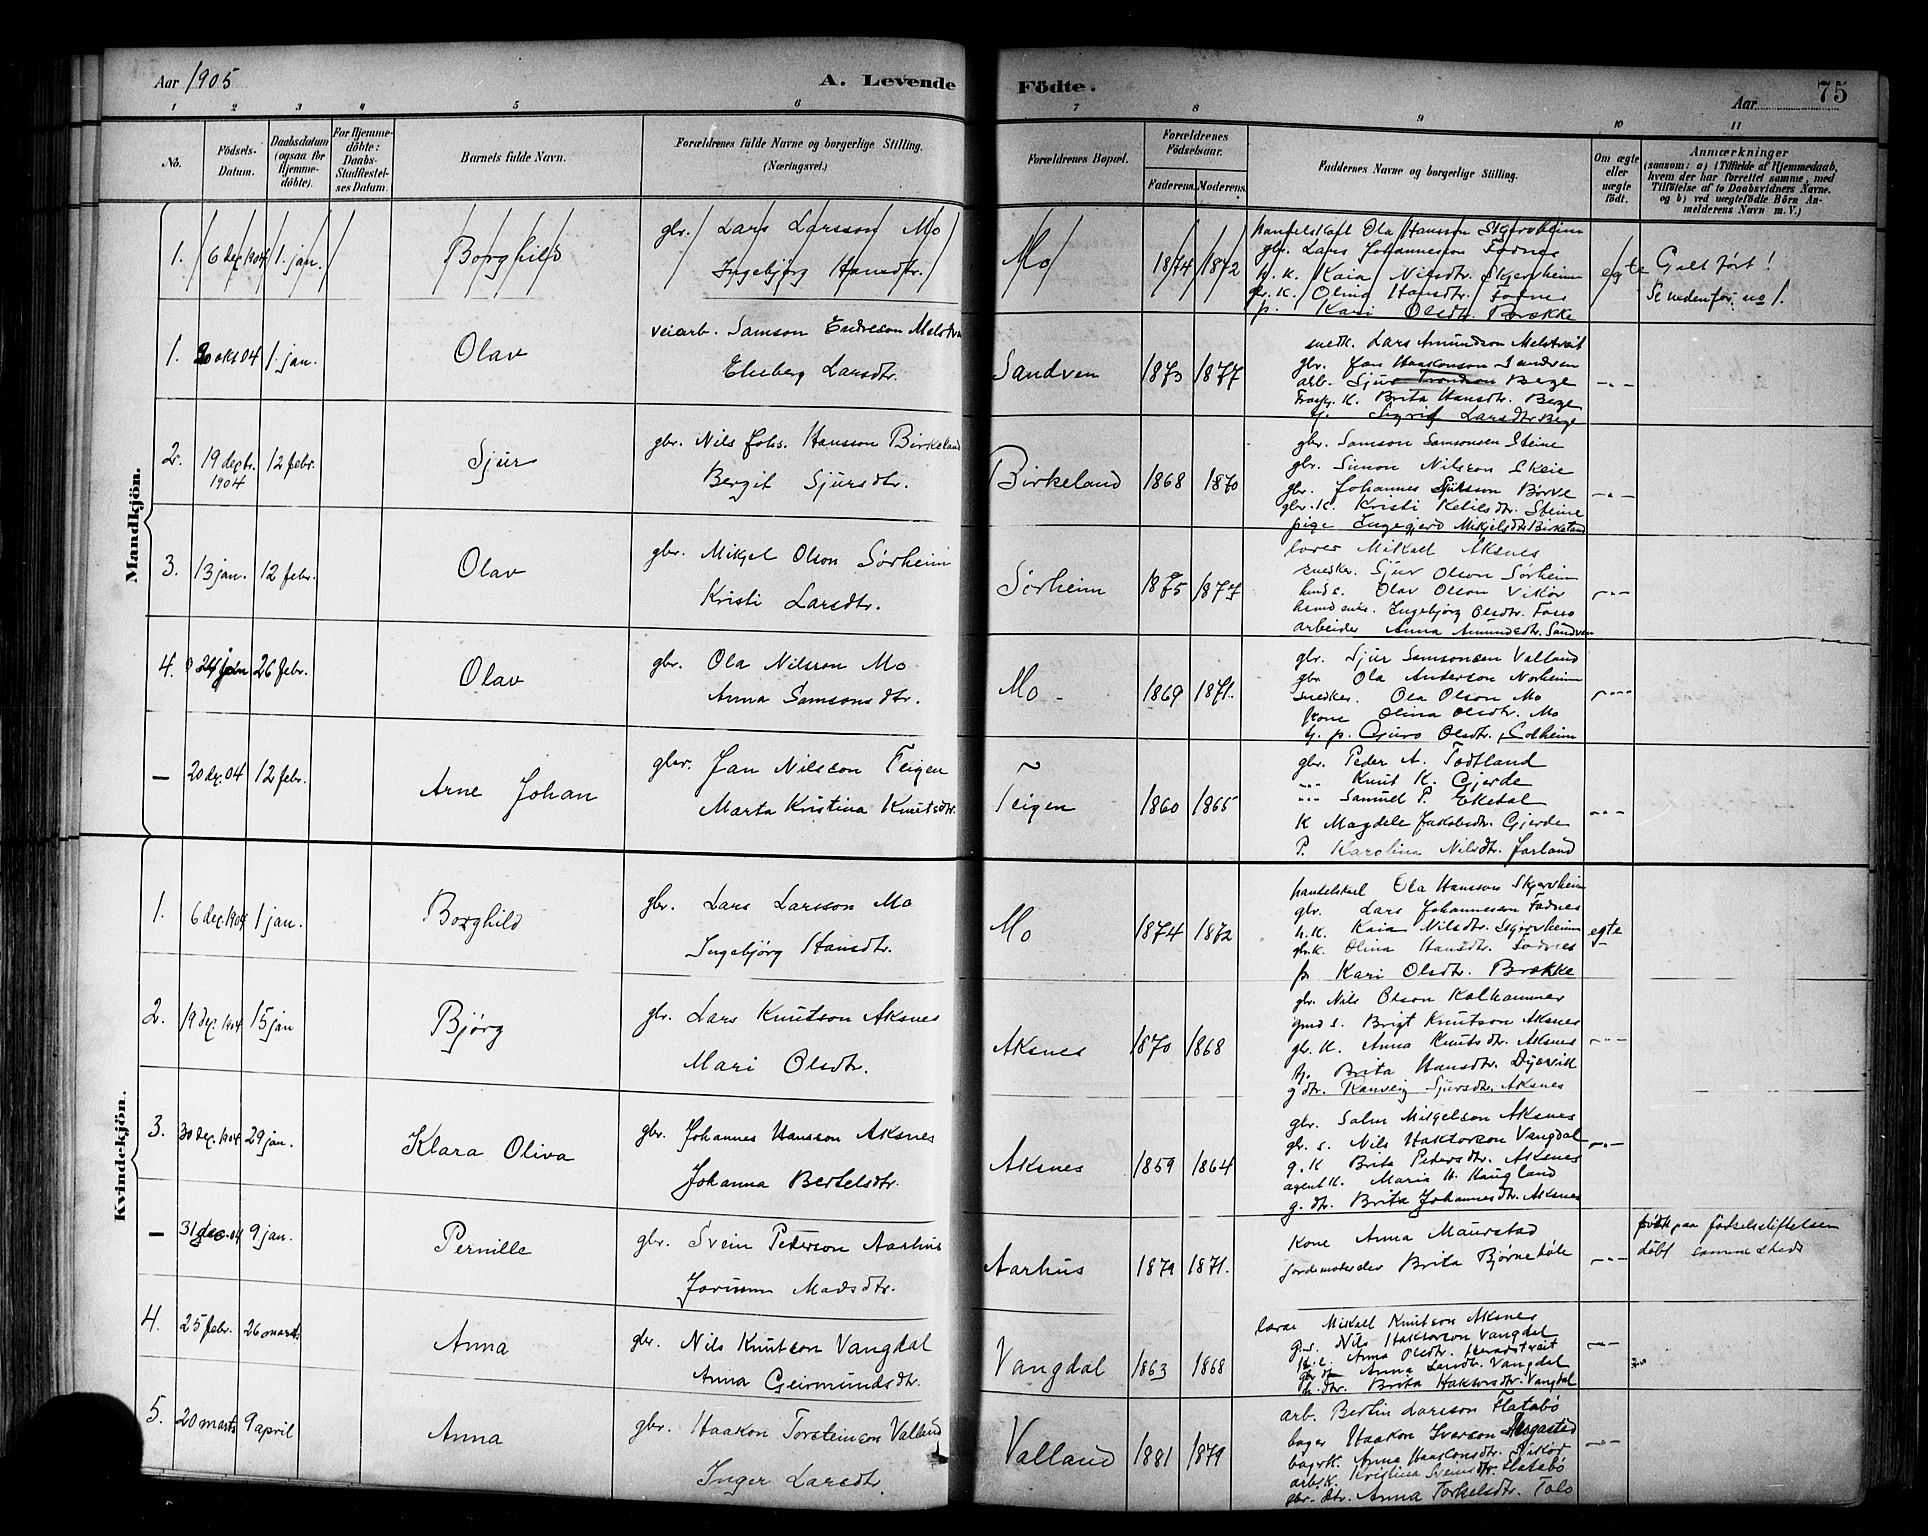 Aar 1905
A. Levende
Födte.
Aar
75
1 2 3 4 5 6 7 8 9 10 11
No.
Födsels-Datum.
Daabsdatum (ogsaa for Hjemme-döbte).
For Hjemme-döbte: Daabs-Stadfæstel-ses Datum.
Barnets fulde Navn.
Forældrenes fulde Navne og borgerlige Stilling.
(Næringsvei.)
Forældrenes Bopæl.
Forældrenes Födselsaar.
Faderens. Moderens.
Faddernes Navne og borgerlige Stilling.
Om ægte eller uægte födt.
Anmærkninger
(saasom: a) i Tilfælde af Hjemmedaab,
hvem der har forrettet samme, med
Tilföielse af to Daabsvidners Navne,
og b) ved uægtefödte Börn An-
melderens Navn m. V.)
Mandkjön.
1. 6 dec 1904 1. jan. Borghild
gbr. Lars Larsson Mo
Ingebjörg Hansdtr.
Mo 1874 1872
handelskarl Ola Hansson Skjervheim
gbr. Lars Johanneson Fodnes
h. k. Kaia Nilsdtr. Skjervheim
gbr. k. Olina Hansdtr. Fodnes
p. Kari Olsdtr. Brokke
egte Galt fört!
Se nedenfor no 1.
1. 20 okt 04 1. jan. Olav
veiarb. Samson Endreson
Larsdtr.
Sandven 1873 1877
snedk. Lars Amundson
gbr. Jan Haakonson Sandven
arb. Sjur Berge
K. Brita Hansdtr. Berge
Larsdtr Berge
2. 19 decbr. 1904 12 febr. Sjur
gbr. Nils Johs. Hansson Birkeland
Bergit Sjursdtr.
Birkeland 1868 1870
gbr. Samson Samsonsen Steine
gbr. Simon Nilsson Skeie
gbr. Johannes Börve
gbr. K. Kristi Ketilsdtr. Steine
pige Birkeland
3. 13 jan. 12 febr. Olav
gbr. Mikjel Olson Sörheim
Kristi Larsdtr.
Sörheim 1875 1877
lærer Mikael Aksnes
snedker. Sjur Olson Sörheim
Olav Olson Vikör
Ingebjörg Olsdtr.
arbeider Anna Amundsdtr. Sandven
4. 26 febr. Olav
gbr. Ola Nilsson Mo
Anna Samsonsdtr.
Mo 1869 1871.
gbr. Sjur Samsonsen Valland
gbr Ola Anderson Norheim
snedker. Ola Olson Mo
kone Olina Olsdtr. Mo
tj. p. Guro Olsdtr.
— 20 dec. 04 12 febr. Arne Johan
gbr. Jan Nilsson Teigen
Marta Kristina Knutsdtr.
Teigen 1860 1865
gbr. Peder A.
Knut K. Gjerde
Samuel P. Eketal
K Magdele Jakobsdtr. Gjerde
P. Karolina Nilsdtr.
Kvindekjön.
1. 6 dec. 1904 1 jan. Borghild
gbr. Lars Larsson Mo
Ingebjörg Hansdtr.
Mo 1874 1872
handelskarl Ola Hansson Skjervheim
gbr. Lars Johannesen Fodnes
h. K. Kaia Nilsdtr. Skjervheim
gbr. K. Olina Hansdtr. Fodnes
p. Kari Olsdtr. Brokke
egte
2. 19 dec 1904 15 jan Björg
gbr. Lars Knutson Aksnes
Mari Olsdtr.
Aksnes 1870 1868
gbr. Nils Olson Kalhammer
gmd s. Brigt Knutson Aksnes
gbr. K. Anna Knutsdtr. Aksnes
tj. Brita Hansdtr. Dysvik
g. dtr. Ranveig Sjursdtr. Aksnes
3. 30 dec. 1904 29 jan. Klara Oliva
gbr. Johannes Hansson Aksnes
Johanna Bertelsdtr.
Aksnes 1859 1864
gbr. Salm. Mikgelson Aksnes
gbr. s. Nils Haktorson Vangdal
g. K Brita Pedersdtr. Aksnes
agent K. Maria H. Haugland
g. dtr. Brita Johannesdtr. Aksnes
— 31 dec. 04 9 jan. Pernille
gbr. Svein Pederson Aarhus
Jorunn Madsdtr.
Aarhus 1879 1871.
Kone Anna Maurstad
jordemoderelev Brita
födt paa födselsstiftelsen
döbt samme steds
4. 25 febr. 26 marts Anna
gbr. Nils Knutson Vangdal
Anna Geirmundsdtr.
Vangdal 1863 1868
lærer Mikael Knutson Aksnes
Nils Haktorson Vangdal
Anna Olsdtr.
Anna Vangdal
Brita Haktorsdtr. Vangdal
5. 20 marts 9 april Anna
gbr. Haakon Torsteinson Valland
Inger Larsdtr.
Valland 1881 1879
arb. Bertin Larsson Flatabö
bager Haakon Iverson
bagerk. Anna Haakonsdtr.
arb. K. Kristina Svensdtr. Flatabö
gbr. dtr. Anna Torkelsdtr. Tolo